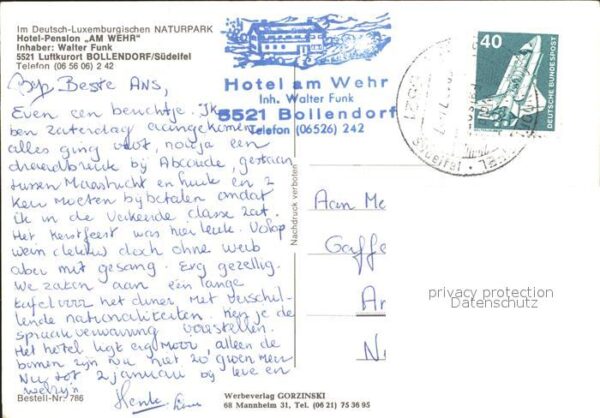 Im Deutsch-Luxemburgischen NATURPARK
Hotel-Pension „AM WEHR"
Inhaber: Walter Funk
5521 Luftkurort BOLLENDORF/Südeifel
Telefon (06 56 06) 2 42
Hotel am Wehr
Inh. Walter Funk
5521 Bollendorf
Telefon (06526) 242
40
DEUTSCHE BUNDESPOST
5521
Südeifel
Beste Ans,
Even een berichtje. Ik
ben zaterdag aangekomen
alles ging vlot, nou ja een
draadbreuk bij Abcoude, gestaan
tussen Maastricht en luik en 2
keer moeten bijbetalen omdat
ik in de verkeerde classe zat.
Het kerstfeest was hier leuk. Volop
wein lekker doch ohne weib
aber mit gesang. Erg gezellig.
We zaten aan een lange
tafel voor het diner. Met verschil-
lende nationaliteiten. Kun je de
spraakverwarring voorstellen.
Het hotel ligt erg mooi, alleen de
bomen zijn nu niet zo groen meer
Nu tot 2 januari bij leve en
welzijn
Henk
Nachdruck verboten
Aan Me
Gaffe
Ar
N
privacy protection
Datenschutz
Bestell-Nr. 786
Werbeverlag GORZINSKI
68 Mannheim 31, Tel. (06 21) 75 36 95